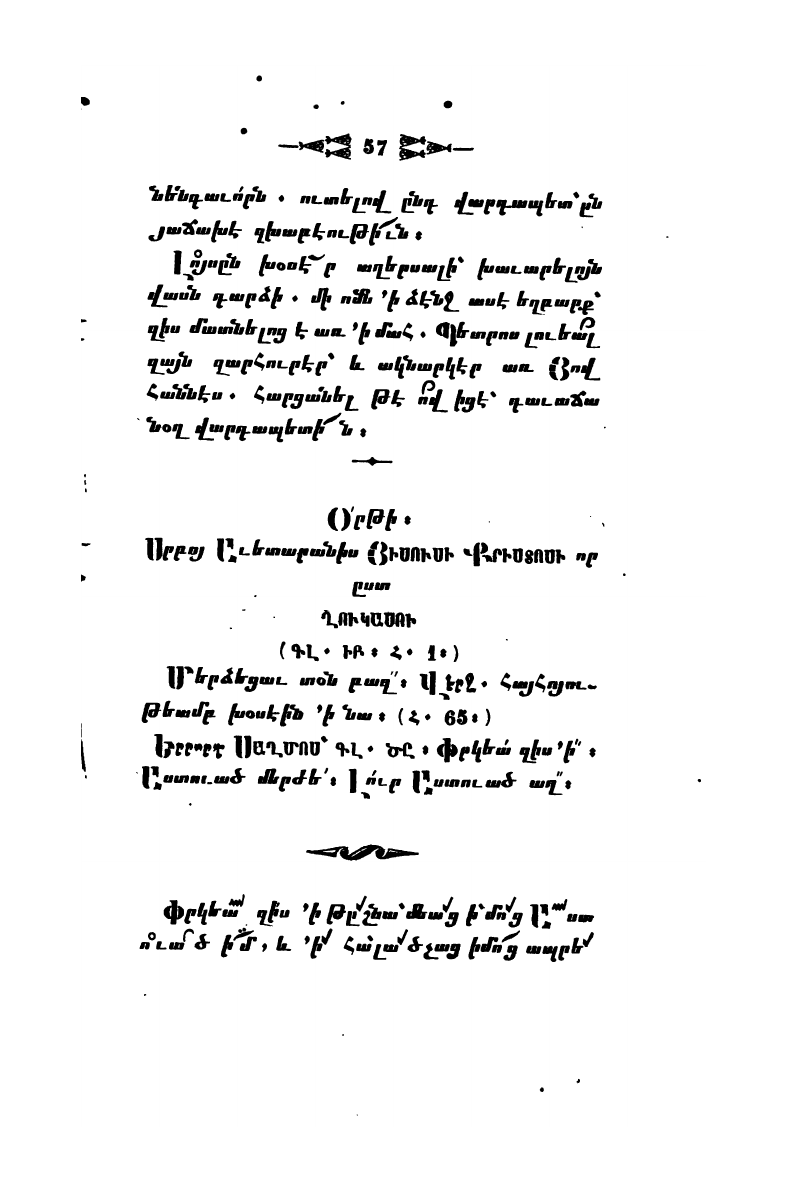 57
նենգաւո՛րն . ուտելով ընդ վարդապետ՝ըն
յաճախէ զխաբէութի՜ւն ։
Լո՛յսըն խօսէ՜ր աղերսալի՝ խաւարելոյն
վասն դարձի . մի ոմն ՚ի ձէնջ ասէ եղբարք՝
զիս մատնելոց է առ ՚ի մահ . Պետրոս լուեալ
զայն զարհուրէր՝ և ակնարկէր առ Յով
Հաննէս . Հարցանել թէ ո՛վ իցէ՝ դաւաճա
նօղ վարդապետի՜ն ։
Օ՛րթի ։
Սրբոյ Աւետարանիս ՅԻՍՈՒՍԻ ՔՐԻՍՏՈՍԻ որ
ըստ
ՂՈՒԿԱՍՈՒ
( ԳԼ . ԻԲ ։ Հ . 1 ։ )
Մերձեցաւ տօն բաղ՛՛ ։ Վէրջ . Հայհոյու-
թեամբ խօսէին ՚ի նա ։ ( Հ . 65 ։ )
Երրորդ ՍԱՂՄՈՍ՝ ԳԼ . ԾԸ ։ Փրկեա՛ զիս ՚ի՛՛ ։
Աստուած մերժե՛՛ ։ Լո՛ւր Աստուած աղ՛՛ ։
Փրկեա՛ զիս ՚ի թըշնա՝մեա՛ց ի՝մո՛ց Ա՛ստ
ո՛ւա՛ծ ի՛մ , և ՚ի՛ Հա՛լա՛ծչաց իմո՛ց ապրե՛